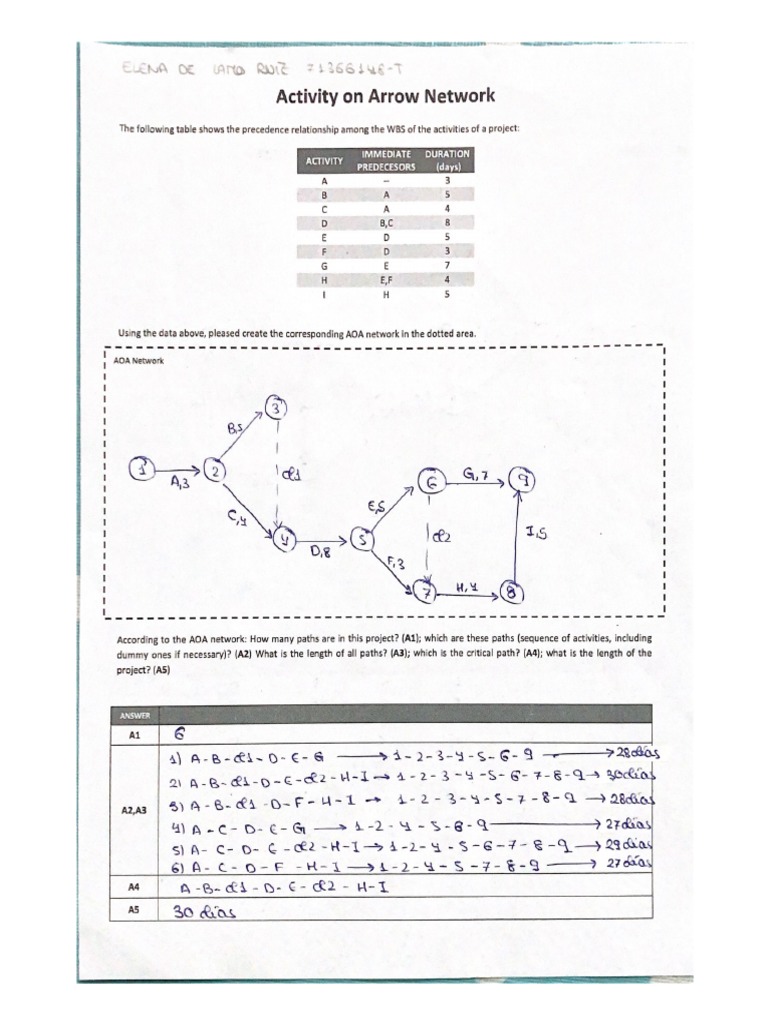 ELENA DE LAMO RUIZ 71366148-T
Activity on Arrow Network
The following table shows the precedence relationship among the WBS of the activities of a project:
ACTIVITY IMMEDIATE PREDECESORS DURATION (days)
A – 3
B A 5
C A 4
D B,C 8
E D 5
F D 3
G E 7
H E,F 4
I H 5
Using the data above, pleased create the corresponding AOA network in the dotted area.
AOA Network
3
B,5
1
A,3
2
d1
6
G,7
9
C,4
E,5
4
D,8
5
d2
I,5
F,3
7
H,4
8
According to the AOA network: How many paths are in this project? (A1); which are these paths (sequence of activities, including
dummy ones if necessary)? (A2) What is the length of all paths? (A3); which is the critical path? (A4); what is the length of the
project? (A5)
ANSWER
A1 6
A2,A3
1) A-B-d1-D-E-G → 1-2-3-4-5-6-9 → 28 días
2) A-B-d1-D-E-d2-H-I → 1-2-3-4-5-6-7-8-9 → 30 días
3) A-B-d1-D-F-H-I → 1-2-3-4-5-7-8-9 → 28 días
4) A-C-D-E-G → 1-2-4-5-6-9 → 27 días
5) A-C-D-E-d2-H-I → 1-2-4-5-6-7-8-9 → 29 días
6) A-C-D-F-H-I → 1-2-4-5-7-8-9 → 27 días
A4 A-B-d1-D-E-d2-H-I
A5 30 días